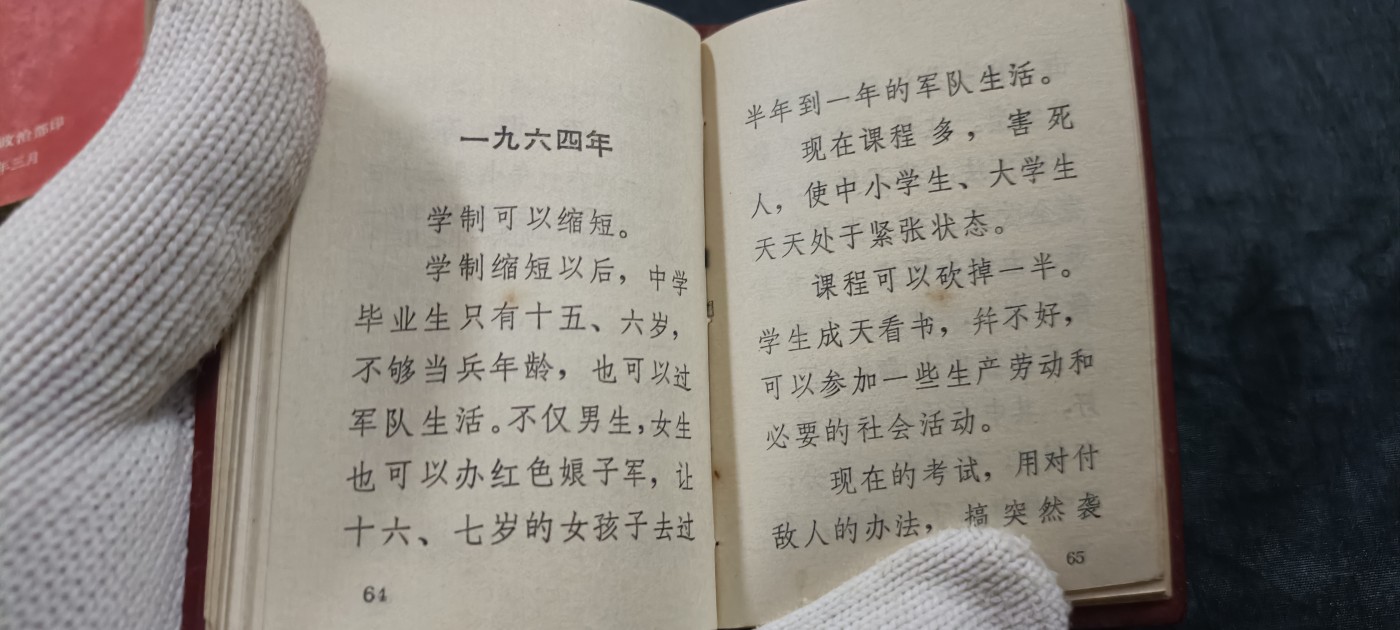 政治部印
年三月
一九六四年
学制可以缩短。
学制缩短以后，中学
毕业生只有十五、六岁，
不够当兵年龄，也可以过
军队生活。不仅男生，女生
也可以办红色娘子军，让
十六、七岁的女孩子去过
64
半年到一年的军队生活。
现在课程多，害死
人，使中小学生、大学生
天天处于紧张状态。
课程可以砍掉一半。
学生成天看书，幷不好，
可以参加一些生产劳动和
必要的社会活动。
现在的考试，用对付
敌人的办法，搞突然袭
65